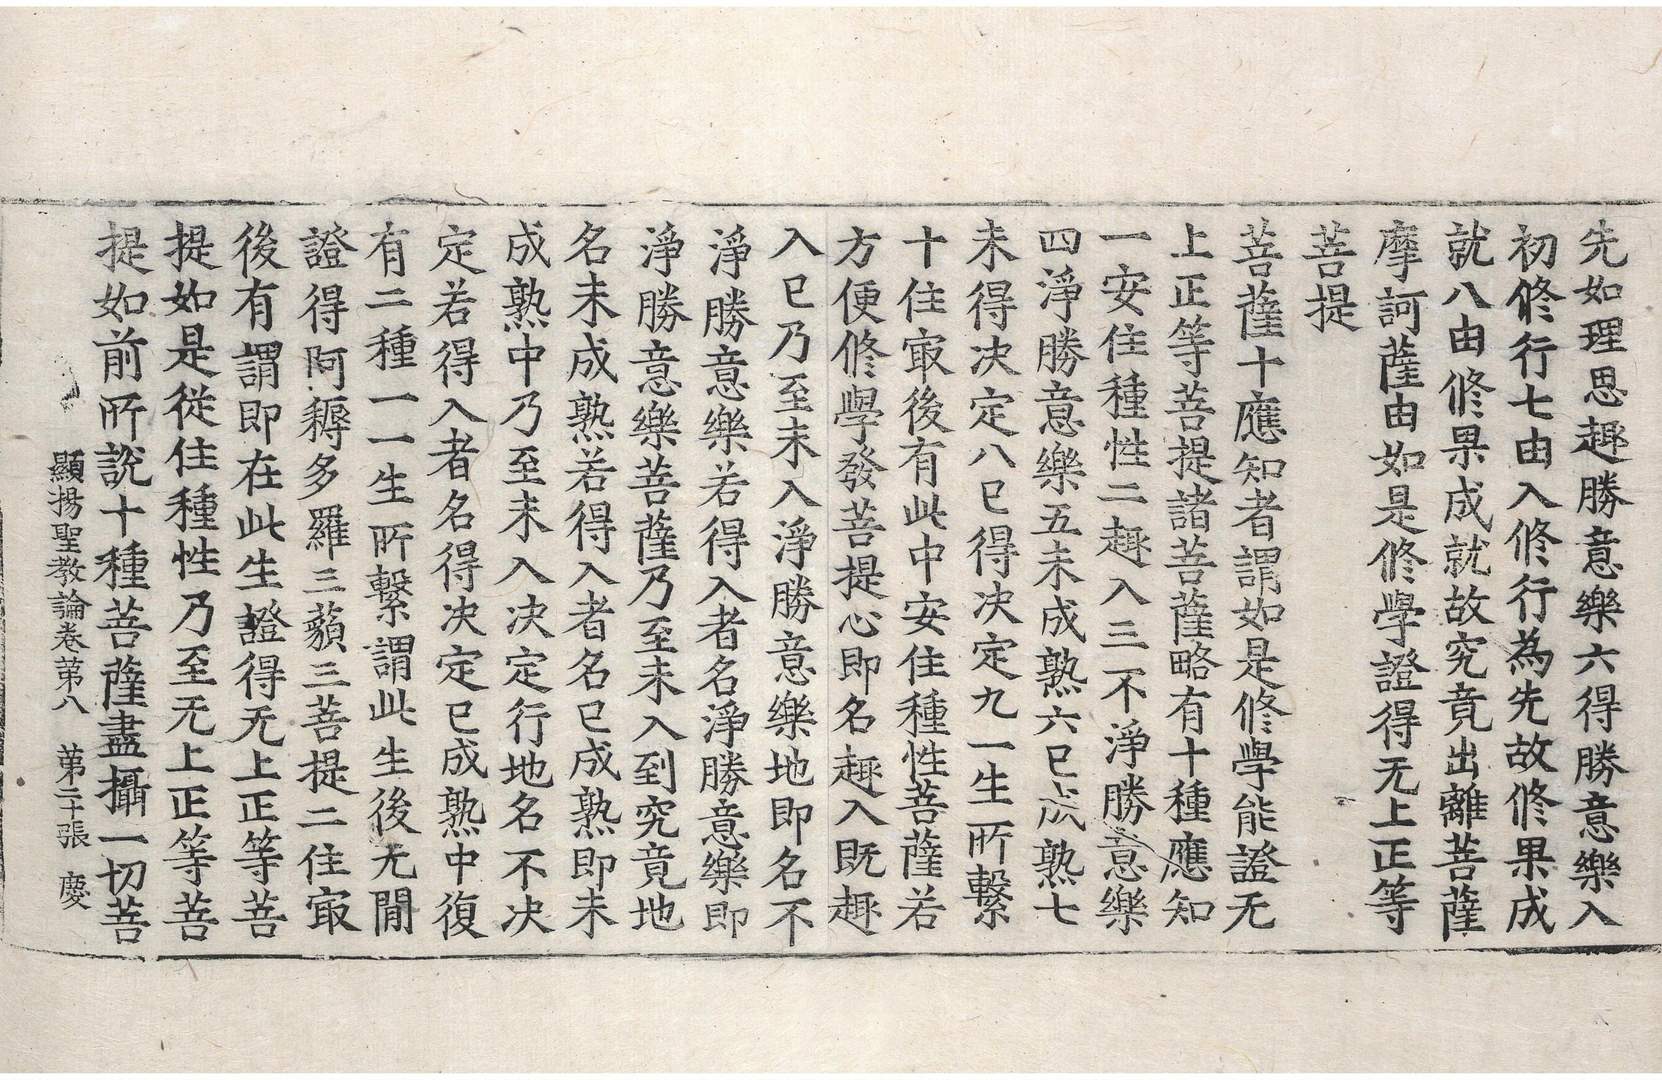 先如理思趣勝意樂六得勝意樂入
初修行七由入修行為先故修果成
就八由修果成就故究竟出離菩薩
摩訶薩由如是修學證得无上正等
菩提
菩薩十應知者謂如是修學能證无
上正等菩提諸菩薩略有十種應知
一安住種性二趣入三不淨勝意樂
四淨勝意樂五未成熟六已成熟七
未得决定八已得决定九一生所繫
十住㝡後有此中安住種性菩薩若
方便修學發菩提心即名趣入既趣
入已乃至未入淨勝意樂地即名不
淨勝意樂若得入者名淨勝意樂即
淨勝意樂菩薩乃至未入到究竟地
名未成熟若得入者名已成熟即未
成熟中乃至未入决定行地名不决
定若得入者名得决定已成熟中復
有二種一一生所繫謂此生後无閒
證得阿耨多羅三藐三菩提二住㝡
後有謂即在此生證得无上正等菩
提如是從住種性乃至无上正等菩
提如前所說十種菩薩盡攝一切菩
顯揚聖教論卷第八 第二十張 慶